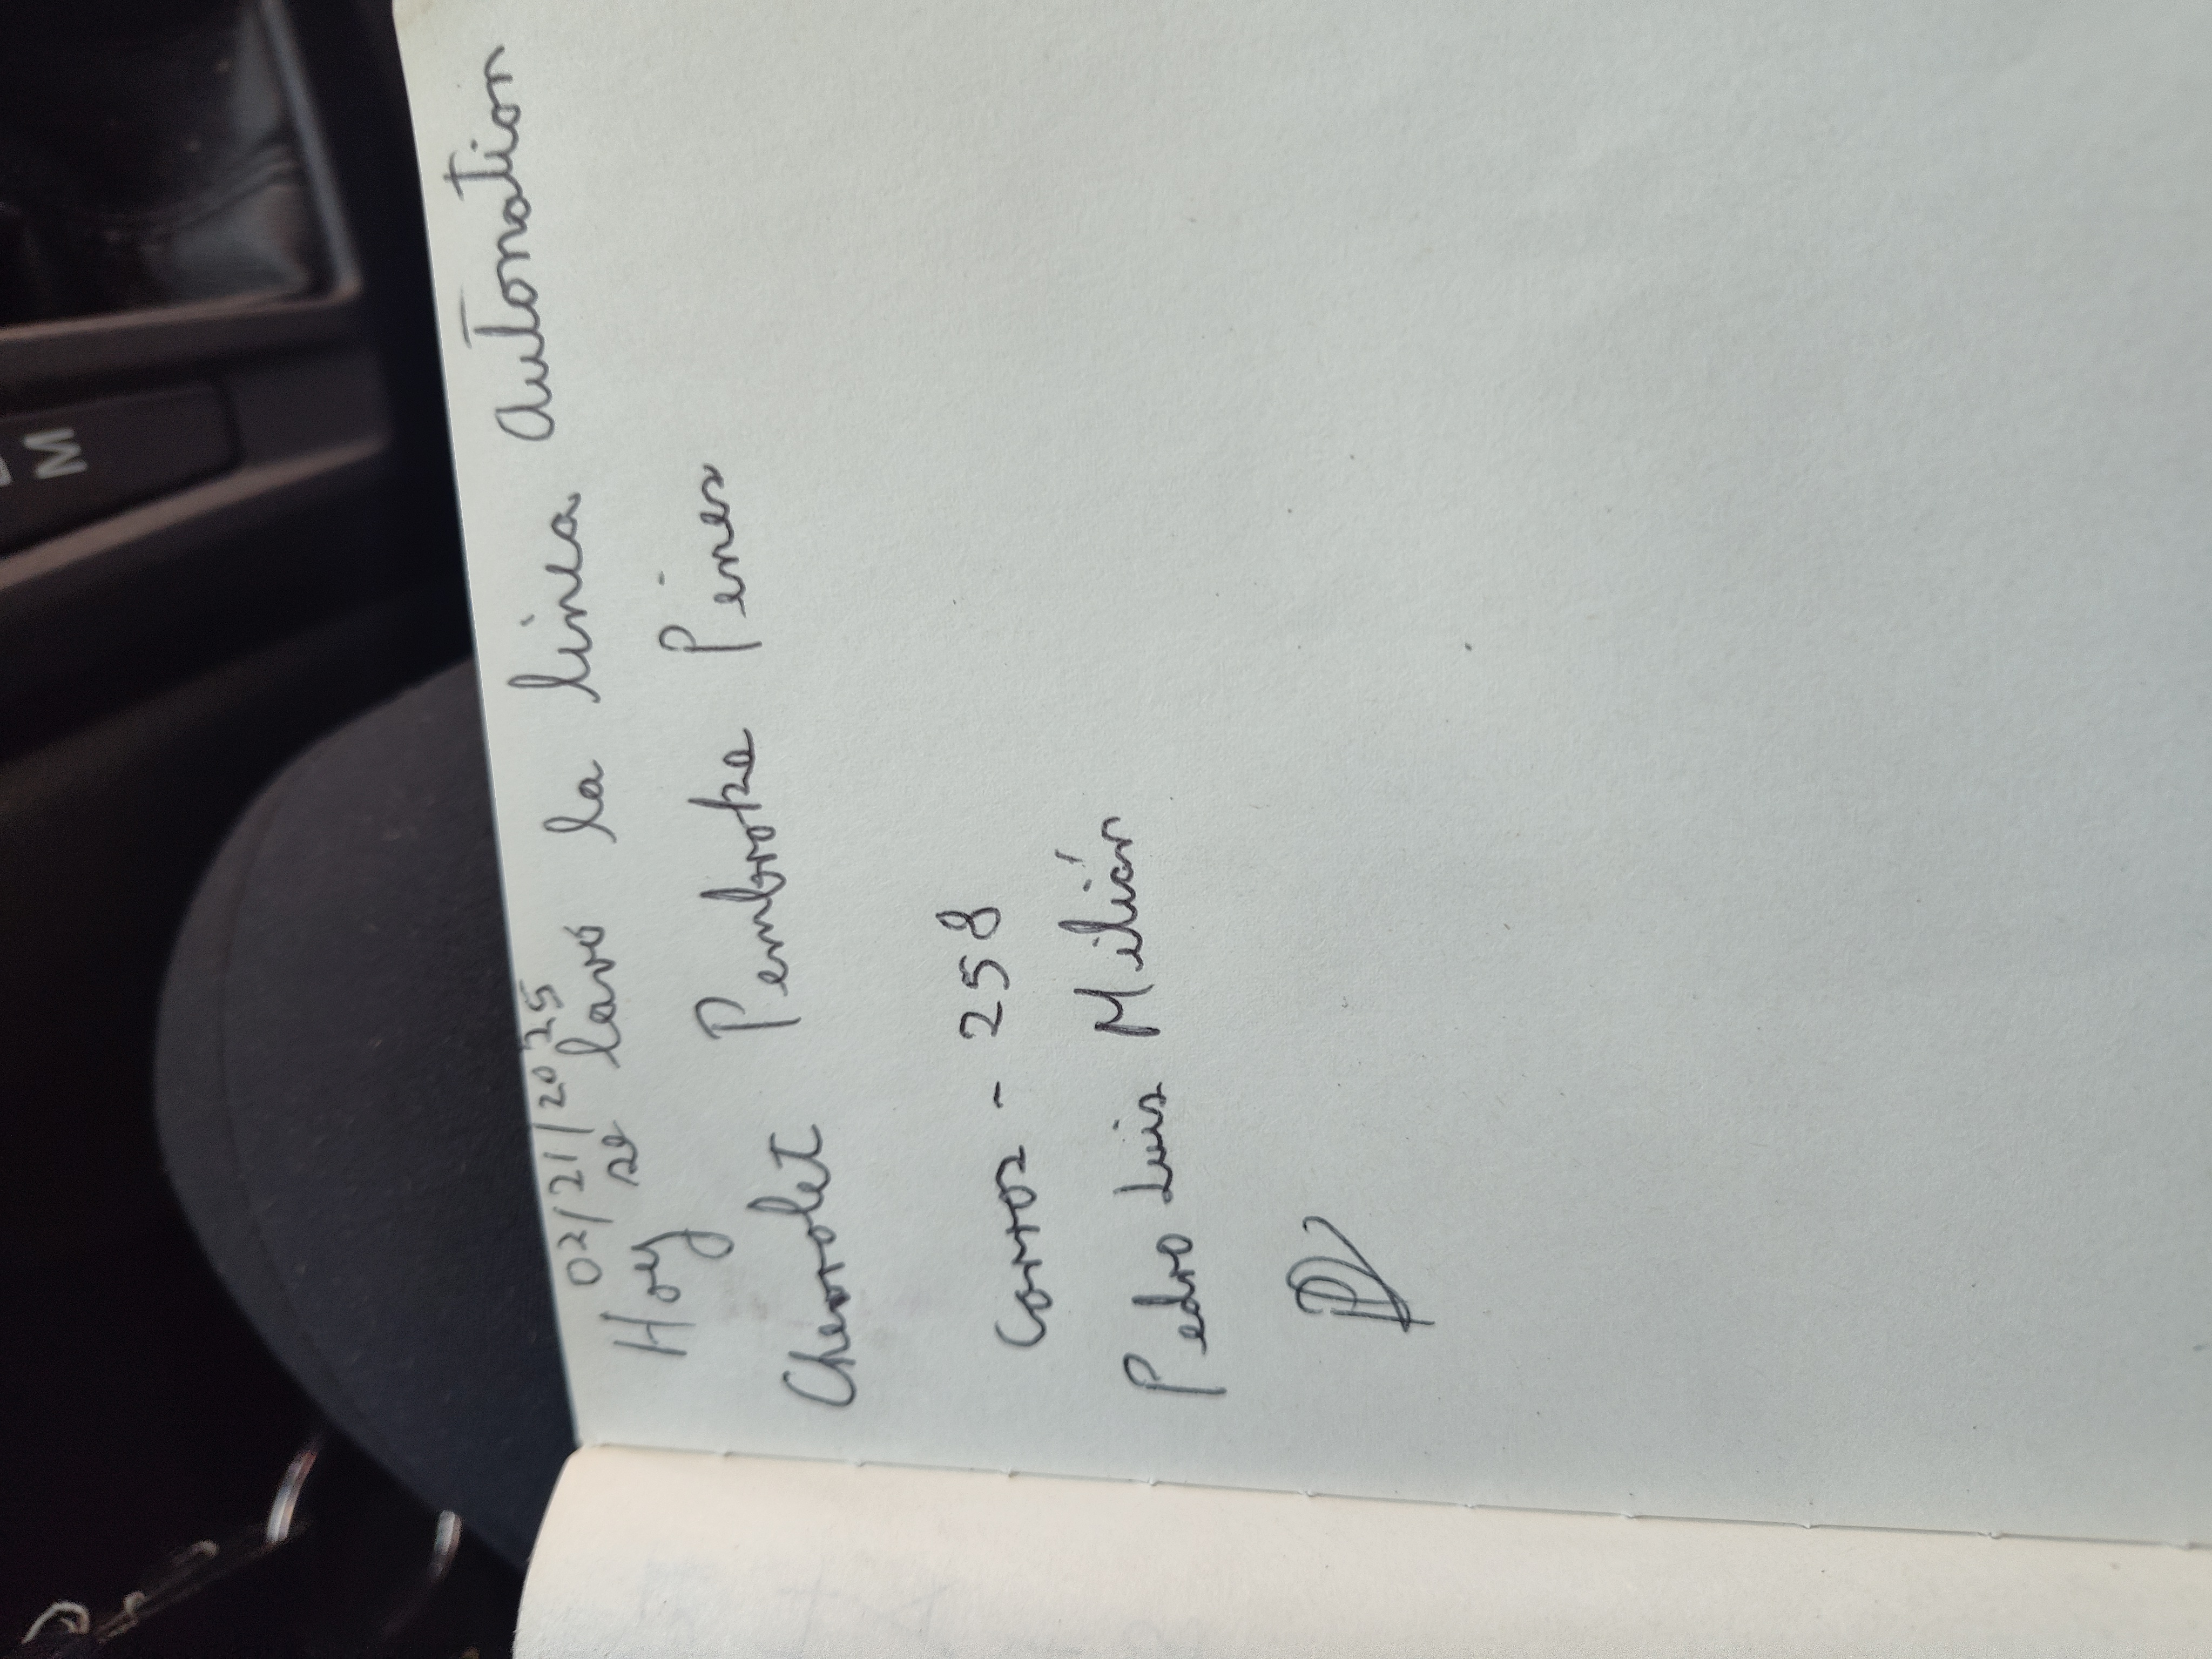 02/21/2025
Hoy se lavó la linea Autonation
Chevrolet Pembroke Pines
Carros - 258
Pedro Luis Milián
M